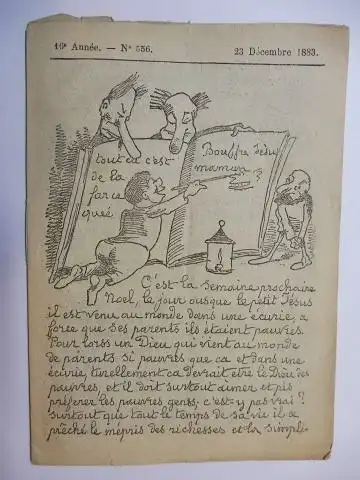 16e Année. — No 556.
23 Décembre 1883.
tout ça c'est
de la
farce
Bouffre Jésu
?
C'est la semaine prochaine
Noel, le jour ousque le petit Jésus
il est venu au monde dans une écurie, a
force que ses parents ils étaient pauvres.
Pour lorss un Dieu qui vient au monde
de parents si pauvres que ca et dans une
écurie, turellement ca devrait etre le Dieu des
pauvres, et il doit surtout aimer et pis
préferer les pauvres genss, c'est-y pas vrai ?
surtout que tout le temps de sa vie il a
prêché le mépris des richesses et la simpli-